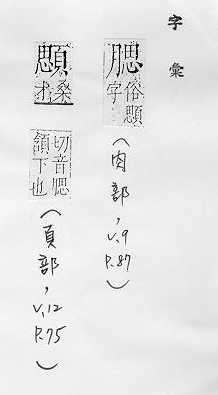 字彙
腮
俗顋
字
(肉部, V.9
P.87)
顋
桑
才
切音
頷下也
(頁部, V.12
P.75)